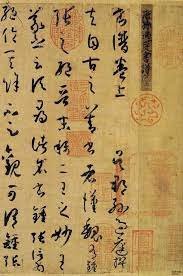 書譜卷上 吳郡孫過庭撰
夫自古之善書者漢魏有鍾
張之絕晉末稱二王之妙王
羲之云頃尋諸名書鍾張信為
絕倫其餘不足觀可謂鍾張